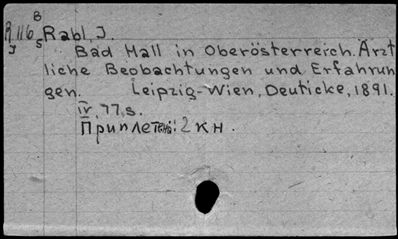 B
R 116 Rabl, J.
J S
Bad Hall in Oberösterreich. Ärzt
liche Beobachtungen und Erfahrun
gen. Leipzig-Wien, Deuticke, 1891.
IV, 77, s.
Приплетены: 2 кн.